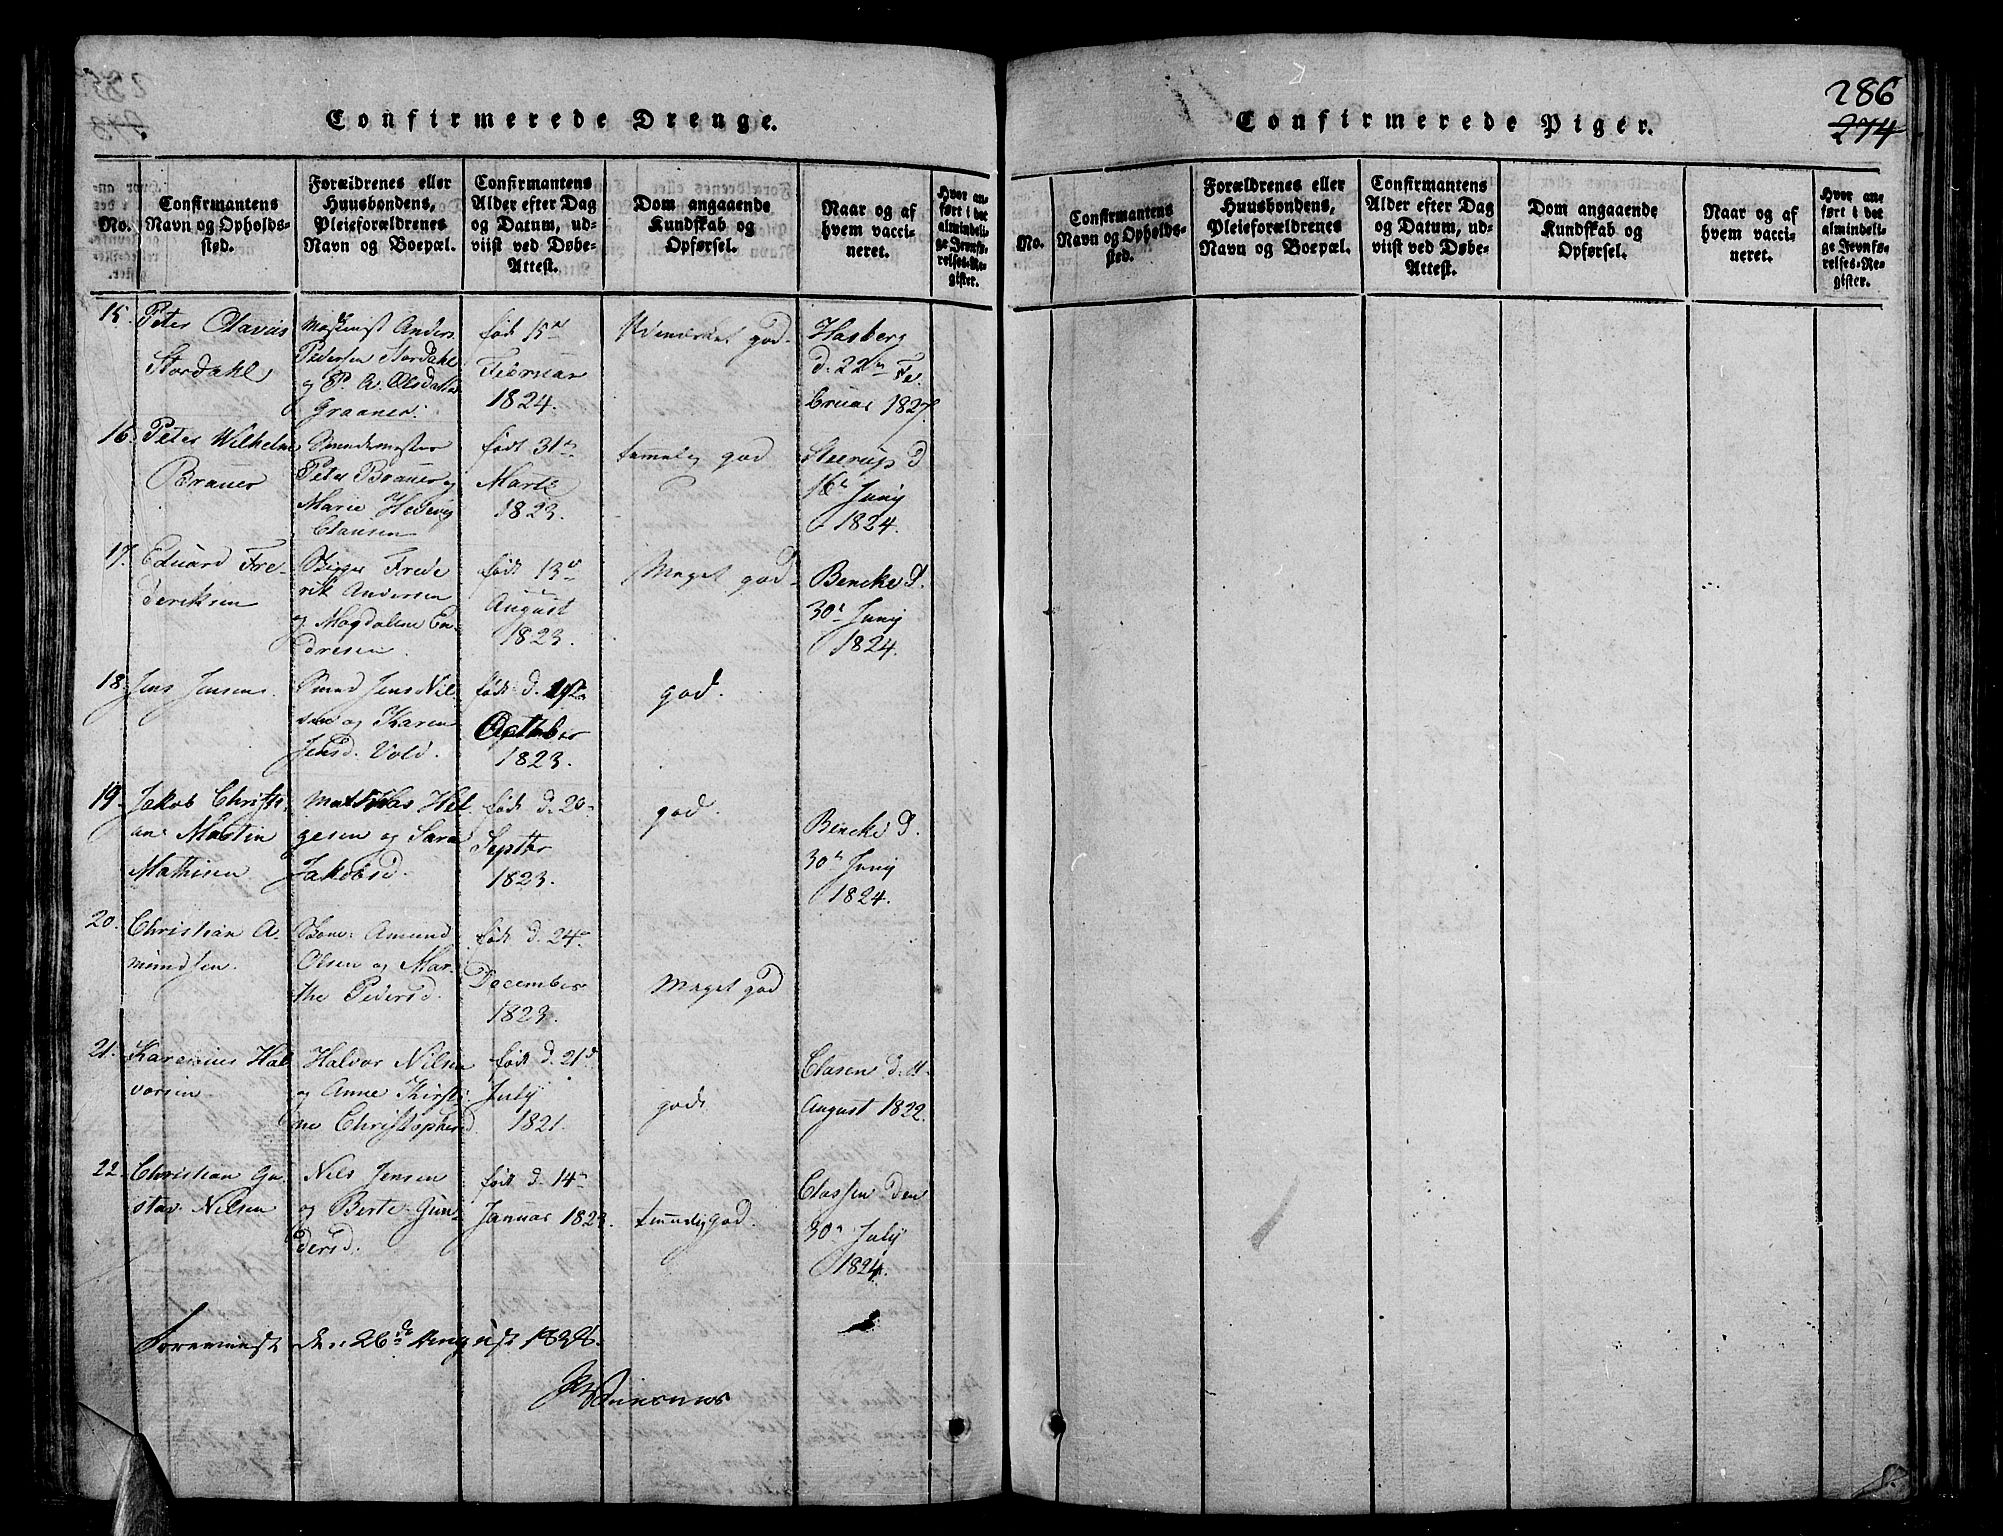 Confirmerede Drenge.
No.
Confirmantens
Navn og Opholds-
sted.
Forældrenes eller
Huusbondens,
Pleieforældrenes
Navn og Boepæl.
Confirmantens
Alder efter Dag
og Datum, ud-
viist ved Døbe-
Attest.
Dom angaaende
Kundskab og
Opførsel.
Naar og af
hvem vacci-
neret.
Hvor an-
ført i det
almindeli-
ge Jevnfø-
relses-Re-
gister.
15.
Peter Olavus
Stordahl
Anders
Pedersen Stordahl
og P. A. Olsdatter
Graaner.
født 15de
Februar
1824.
Udmærket god.
Hasberg
d. 22de Fe-
bruar 1827.
16.
Peter Wilhelm
Brauer
Smedemester
Peter Brauer og
Marie Hedevig
Clausen
født 31te
Marts
1823.
temmelig god
Steerup d
16de Junij
1824.
17.
Eduard Fre-
deriksen
Skipper Frede
rik Andersen
og Magdalene En-
dresen.
født 13de
August
1823.
Meget god.
Bencke d.
30te Junij
1824.
18.
Jens Jensen
Smed Jens Nil-
sen og Karen
Jensd. Vold.
født d.
1823.
god.
19.
Jakob Christi-
an Martin
Mathisen
Mathias Hel-
gesen og Sara
Jakobsd.
født d. 20de
Septbr
1823.
god.
Bencke d.
30te Junij
1824.
20.
Christian A-
mundsen.
Amund
Olsen og Mar-
the Pedersd.
født d. 24de
December
1823.
Meget god
21.
Karenius Hal
vorsen
Haldor Nilsen
og Anne Kirsti-
ne Christophersd.
født d. 21de
July
1821.
god.
Clasen d. 11.
August 1822.
22.
Christian Gu-
stav Nilsen
Nils Jensen
og Berte Gun-
dersd.
født d. 14de
Januar 1823.
temmelig god.
Classen den
30te July
1824.
den 26de August 1838.
Confirmerede Piger.
286
274
No.
Confirmantens
Navn og Opholds-
sted.
Forældrenes eller
Huusbondens,
Pleieforældrenes
Navn og Boepæl.
Confirmantens
Alder efter Dag
og Datum, ud-
viist ved Døbe-
Attest.
Dom angaaende
Kundskab og
Opførsel.
Naar og af
hvem vacci-
neret.
Hvor an-
ført i det
almindeli-
ge Jevnfø-
relses-Re-
gister.